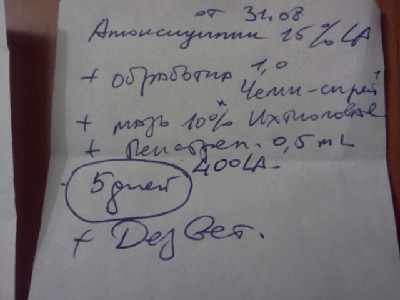 от 31.08
Амоксициллин 15% LA
+ обработка 1,0
Чеми-спрей
+ мазь 10% Ихтиоловая
+ Пенстреп. 0,5 mL
400LA
5 дней
+ ДезВет.